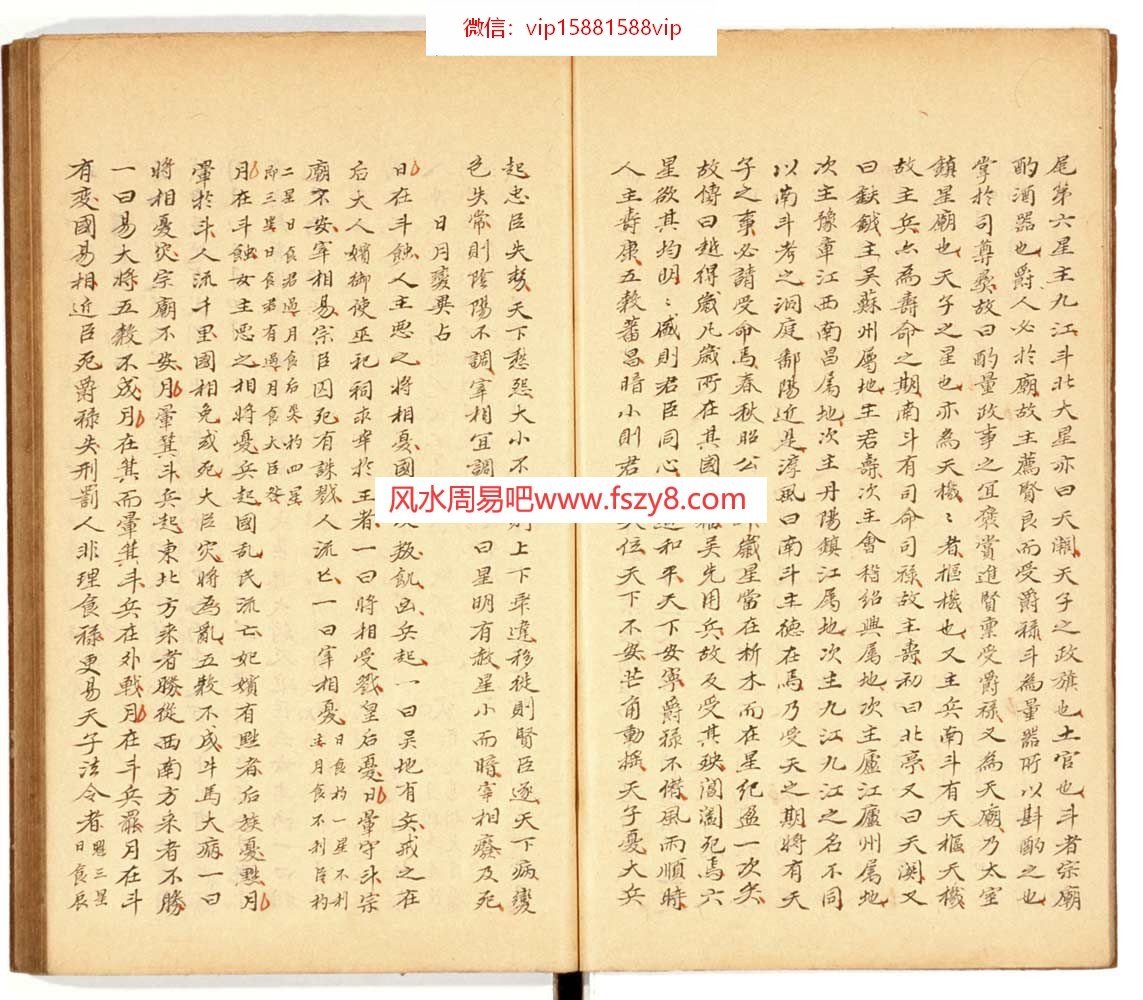 微信：vip15881588vip
尾第六星主九江斗北大星亦曰天闗天子之政旗也土官也斗者宗廟
酌酒器也爵人必於廟故主薦賢良而受爵禄斗為量器所以斟酌之也
掌於司尊彝故曰酌量政事之宜褒賞進賢稟受爵禄又為天廟乃太室
鎮星廟也天子之星也亦為天機〻者樞機也又主兵南斗有天樞天機
故主兵亦為壽命之期南斗有司命司禄故主壽初曰北亭又曰天闗又
曰鈇鉞主吴蘇州屬地主君壽次主會稽紹興属地次主廬江廬州属地
次主豫章江西南昌属地次主丹陽鎮江属地次主九江九江之名不同
以南斗考之洞庭鄱陽近是淳風曰南斗主德在焉乃受天之期將有天
子之事必請受命焉春秋昭公 歲星當在析木而在星紀盈一次矣
故傳曰越得歲凡歲所在其國 吴先用兵故反受其殃闔閭死焉六
星欲其均明〻盛則君臣同心 和平天下安寧爵禄不僭風雨順時
人主壽康五穀蕃昌暗小則君 位天下不安芒角動摇天子憂大兵
起忠臣失勢天下愁怨大小不 則上下乖違移徙則賢臣逐天下病變
色失常則陰陽不調宰相宜調 曰星明有赦星小而暗宰相癈及死
日月變異占
日在斗蝕人主惡之將相憂國 飢凶兵起一曰吴地有兵戒之在
后夫人嬪御使巫祀祠求幸於王者一曰將相受戮皇后憂日暈守斗宗
日食杓一星不利
廟不安宰相易宗臣囚死有誅戮人流亡一曰宰相憂
去月食不利臣杓
二星日食君過月食后災杓四星
即三星日食君有過月食大臣發
月在斗蝕女主惡之相將憂兵起國亂民流亡妃嬪有黜者后族憂黜月
暈於斗人流千里國相免或死大臣災將為亂五穀不成牛馬大病一曰
將相憂災宗廟不安月暈箕斗兵起東北方来者勝從西南方来者不勝
一曰易大將五穀不成月在其而暈其斗兵在外戰月在斗兵罷月在斗
有変國易相近臣死爵禄失刑罰人非理食禄更易天子法令者
魁三星
日食辰
风水周易吧www.fszy8.com